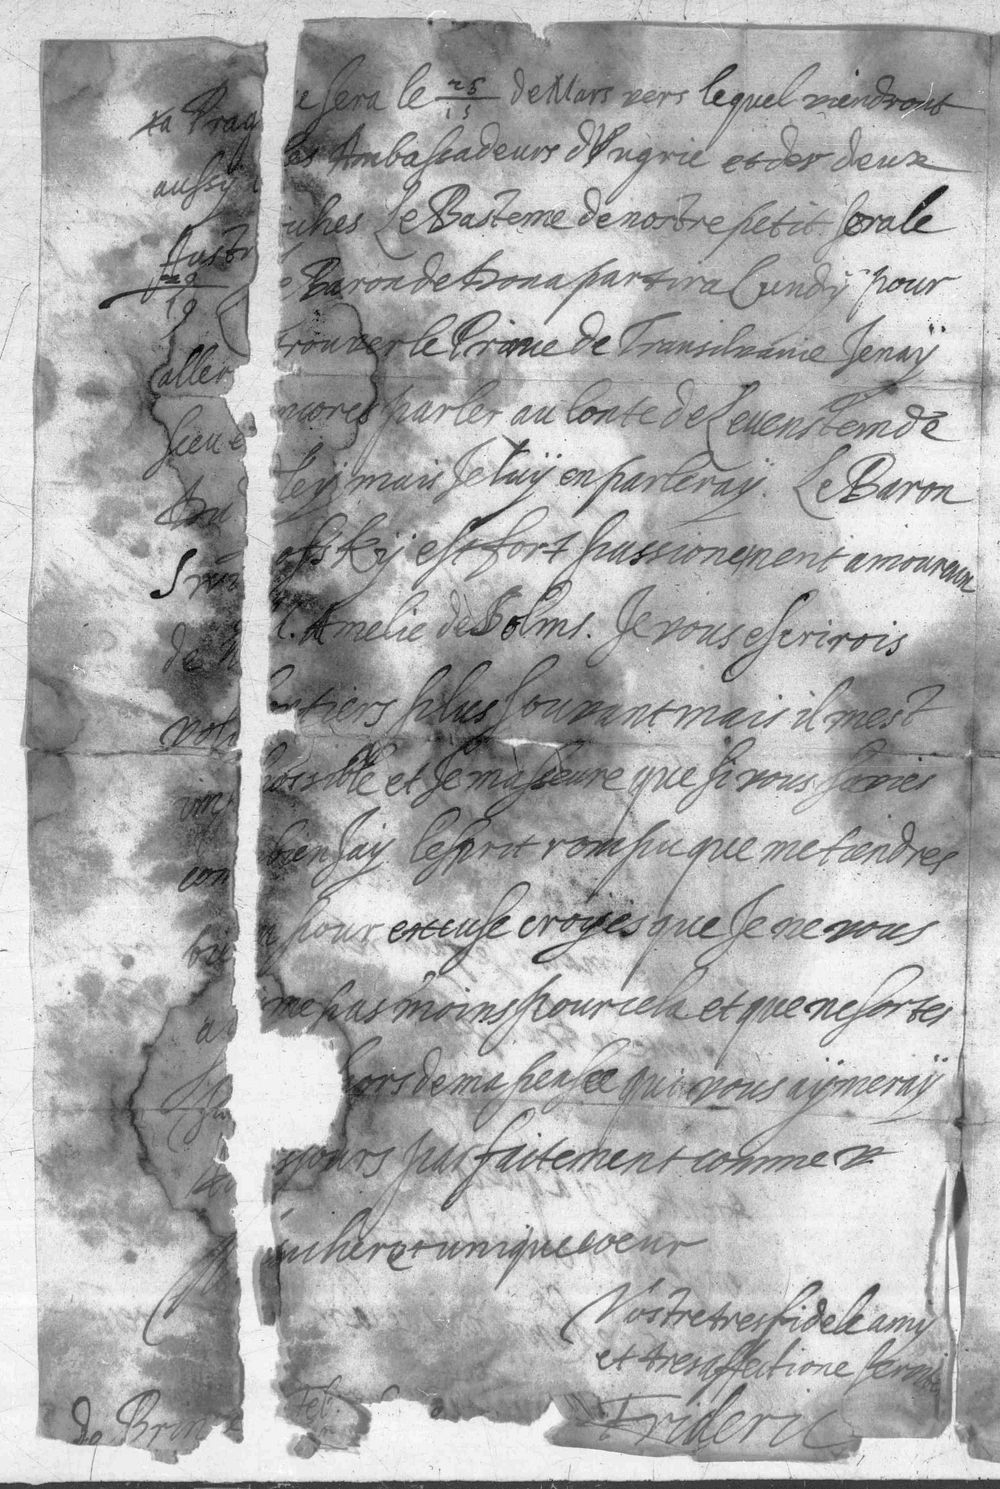 a Prag e sera le 25/15 de Mars vers lequel viendront
aussy les Ambassadeurs d'Ungrie et des deux
Austriches Le Basteme de nostre petit sera le
29/19 Baron de Dona partira Lundy pour
aller trouver le Prince de Transilvanie Jenaÿ
sceu encores parler au Conte de Levenstein de
mais Je luÿ en parleraÿ. Le Baron
est fort passionement amoureux
de M. Amelie de Solms. Je vous escrirois
volontiers plus souvant mais il mest
impossible et Je masseure que si vous savies
combien Jaÿ lesprit rompu que me tiendres
bien pour excuse croyes que Je ne vous
ayme pas moins pour cela et que ne sortes
hors de ma pensee qui vous aÿmeraÿ
tousjours parfaitement comme
cher et unique coeur
Vostre tres fidele amy
et tres affectione
Frideric
De Brin Feb.